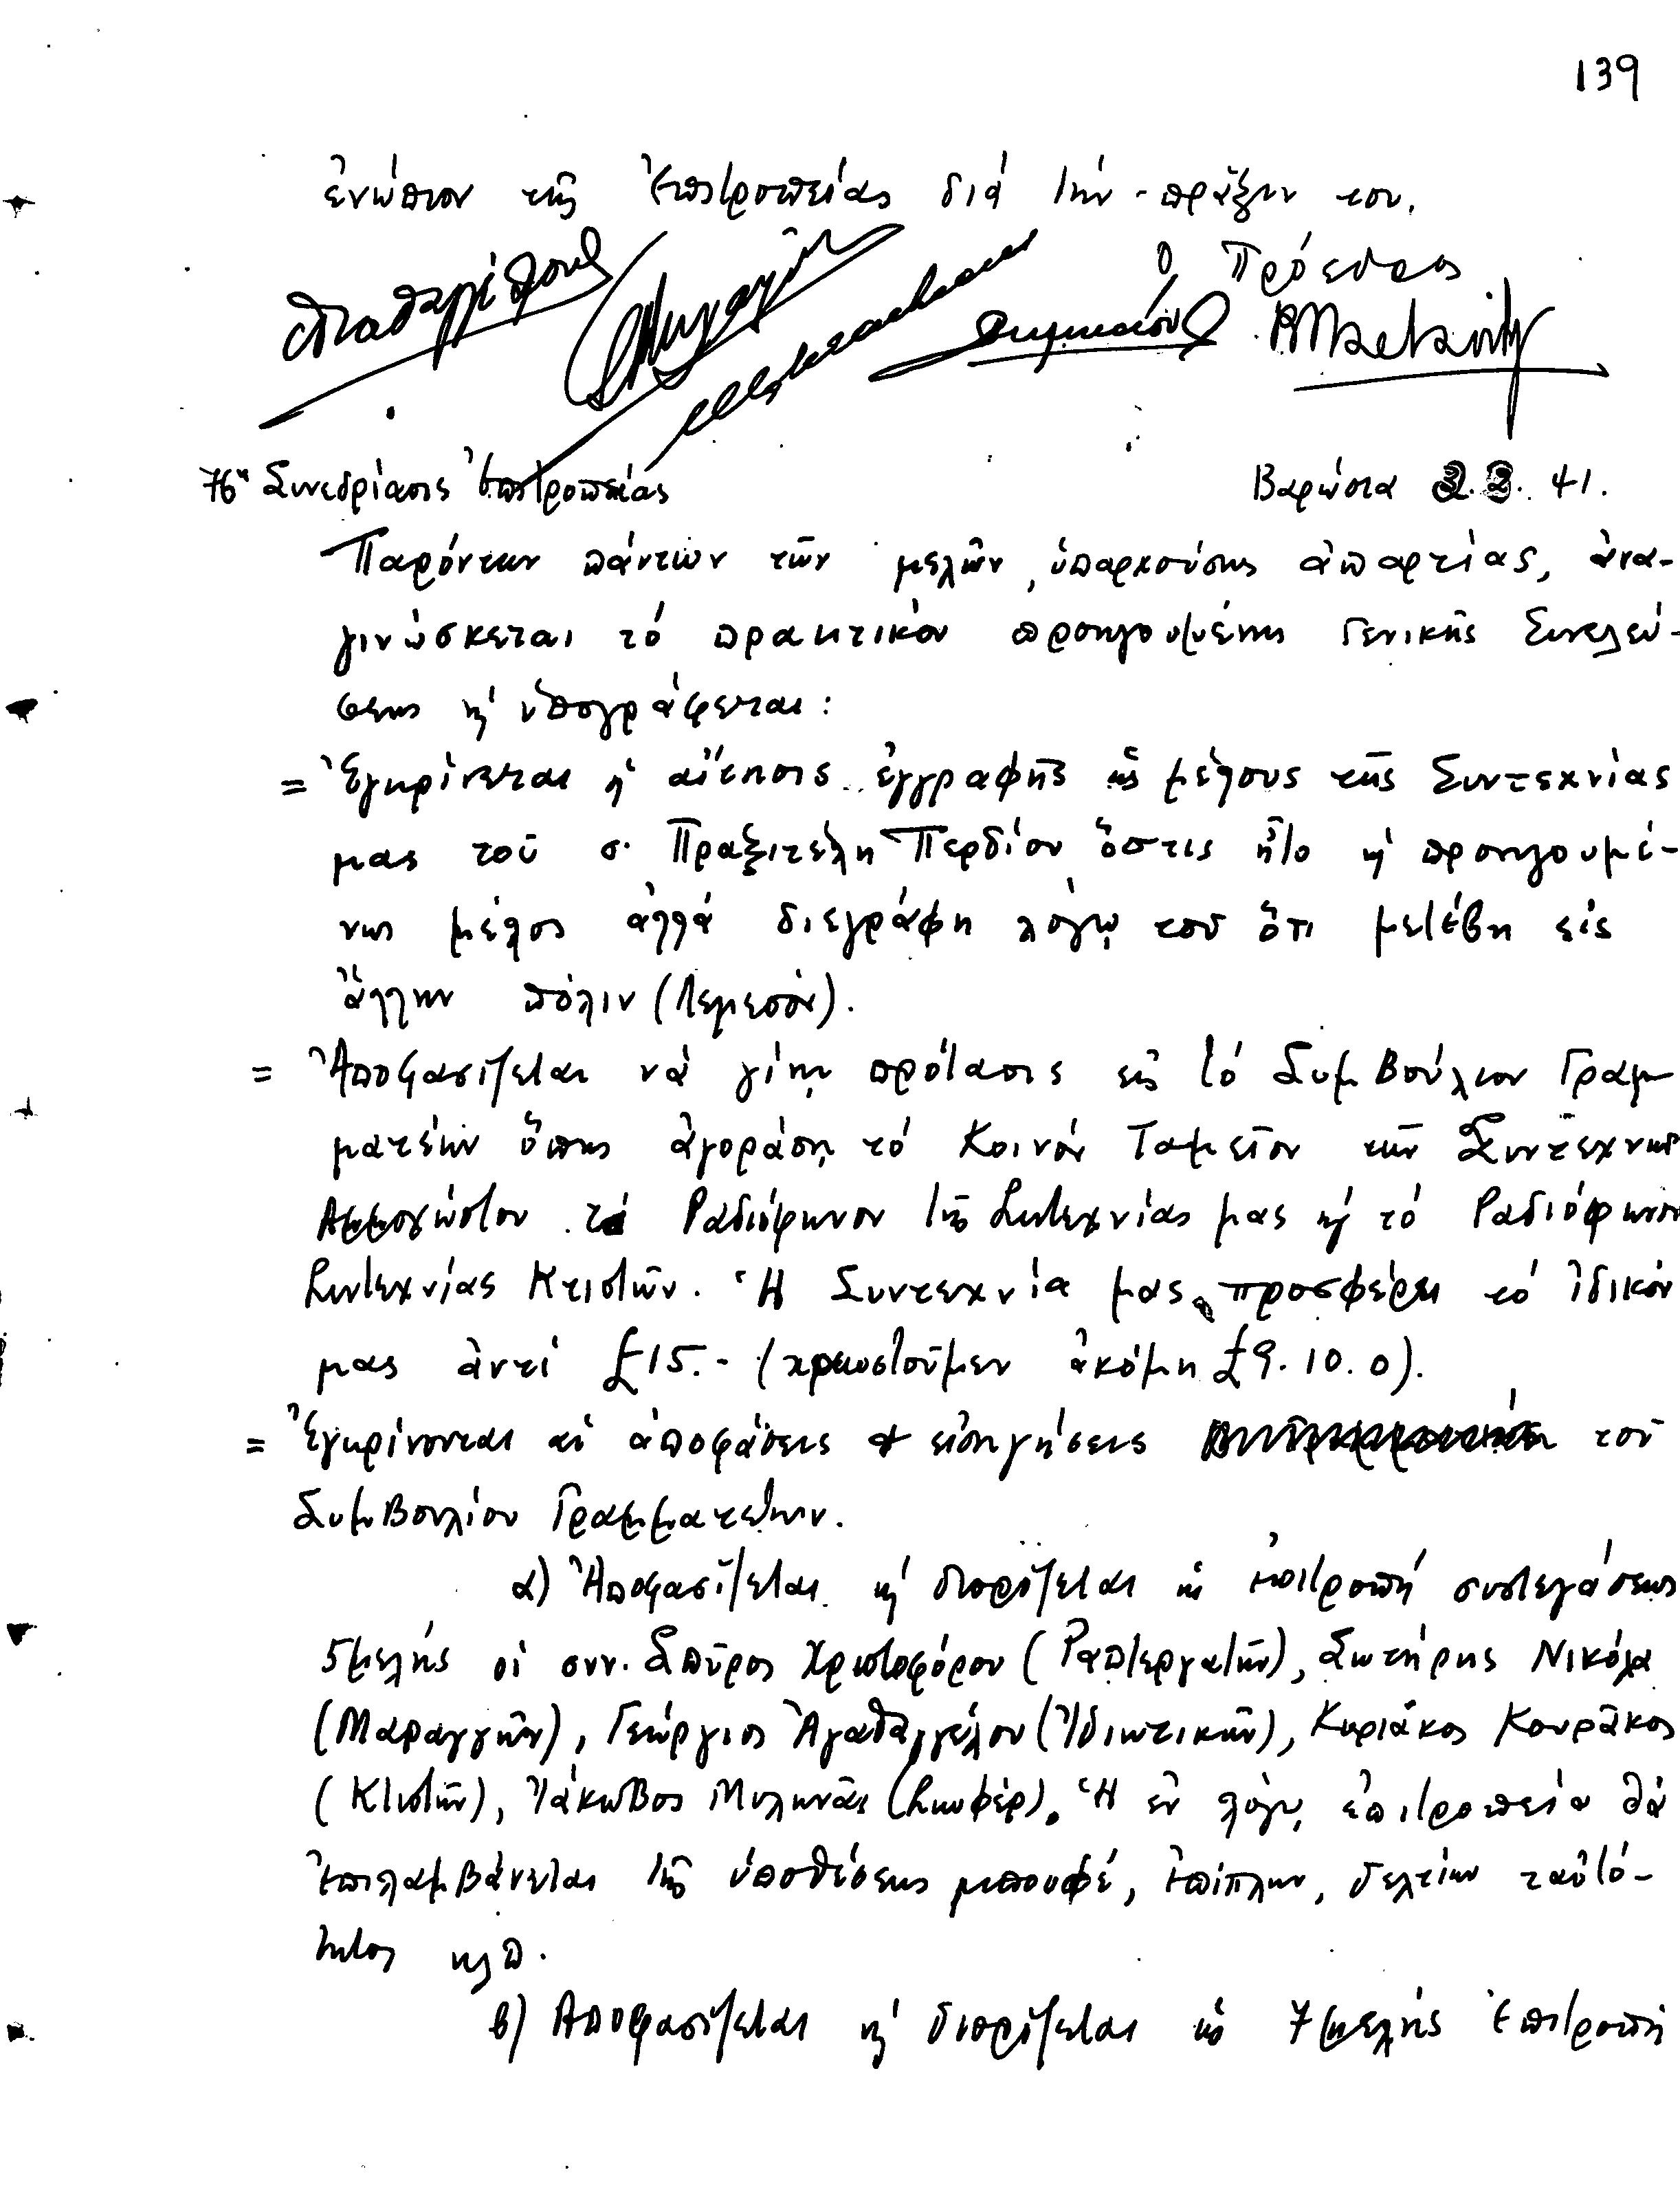 139
ἐνώπιον τῆς Ἐπιτροπείας διά τήν πρᾶξιν του.
Ὁ Πρόεδρος
76η Συνεδρίασις Ἐπιτροπείας Βαρώσια 41.
Παρόντων πάντων τῶν μελῶν, ὑπαρχούσης ἀπαρτίας, ἀνα-
γινώσκεται τό πρακτικόν προηγουμένης Γενικῆς Συνελεύ-
σεως κ' ὑπογράφεται:
= Ἐγκρίνεται ἡ αἴτησις ἐγγραφῆς ὡς μέλους τῆς Συντεχνίας
μας τοῦ σ. Πραξιτέλη Περδίου ὅστις ἦτο κ' προηγουμέ-
νως μέλος ἀλλά διεγράφη λόγῳ τοῦ ὅτι μετέβη εἰς
ἄλλην πόλιν (Λεμεσόν).
= Ἀποφασίζεται νά γίνῃ πρότασις εἰς τό Συμβούλιον Γραμ
ματέων ὅπως ἀγοράσῃ τό Κοινόν Ταμεῖον τῶν Συντεχνιῶν
Αμμοχώστου τό Ραδιόφωνον τῆς Συντεχνίας μας κ' τό Ραδιόφωνον
Συντεχνίας Κτιστῶν. Ἡ Συντεχνία μας προσφέρει τό ἰδικόν
μας ἀντί £15.- (χρεωστοῦμεν ἀκόμη £9.10.0).
= Ἐγκρίνονται αἱ ἀποφάσεις & εἰσηγήσεις τοῦ
Συμβουλίου Γραμματέων.
α) Ἀποφασίζεται κ' διορίζεται ὡς ἐπιτροπή συστεγάσεως
5μελής οἱ συν. Σπῦρος Χριστοφόρου (Ραπτεργατῶν), Σωτήρης Νικόλα
(Μαραγγῶν), Γεώργιος Ἀγαθαγγέλου (Ἰδιωτικῶν), Κυριάκος Κουρᾶκος
(Κτιστῶν), Ἰάκωβος Μυλωνᾶς (Σωφέρ). Ἡ ἐν λόγῳ ἐπιτροπεία θά
ἐπιλαμβάνεται τῆς ὑποθέσεως μπουφέ, ἐπίπλων, δελτίων ταὐτό-
τητος κλπ.
β) Αποφασίζεται κ' διορίζεται ὡς 7μελής Ἐπιτροπή